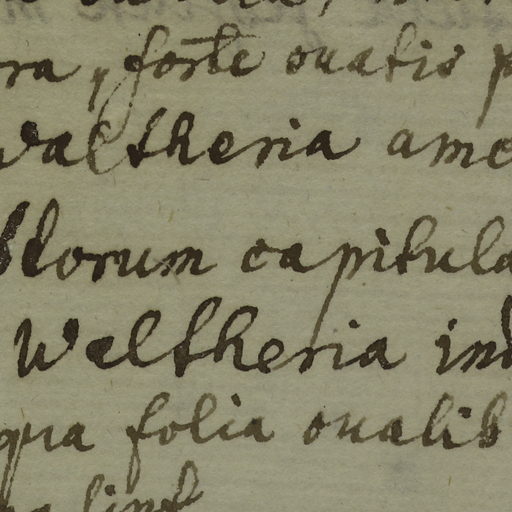 ra, forte ovatis p
Waltheria ame
florum capitula
Waltheria ind
qua folia ovalib